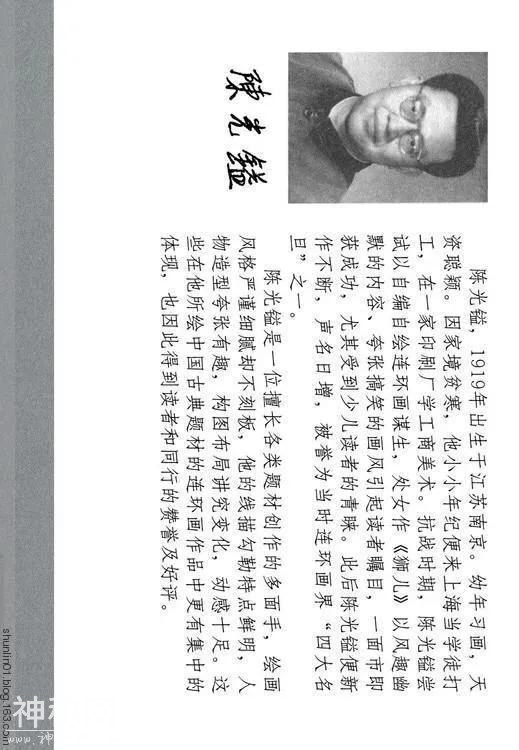 陈光镒
陈光镒，1919年出生于江苏南京。幼年习画，天
资聪颖。因家境贫寒，他小小年纪便来上海当学徒打
工，在一家印刷厂学工商美术。抗战时期，陈光镒尝
试以自编自绘连环画谋生，处女作《狮儿》以风趣幽
默的内容、夸张搞笑的画风引起读者瞩目，一面市即
获成功，尤其受到少儿读者的青睐。此后陈光镒便新
作不断，声名日增，被誉为当时连环画界“四大名
旦”之一。
陈光镒是一位擅长各类题材创作的多面手，绘画
风格严谨细腻却不刻板，他的线描勾勒特点鲜明，人
物造型夸张有趣，构图布局讲究变化，动感十足。这
些在他所绘中国古典题材的连环画作品中更有集中的
体现，也因此得到读者和同行的赞誉及好评。
shunlin01.blog.163.com